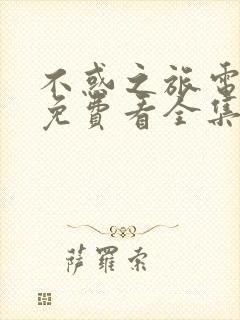 不惑之旅電
免費看全集
萨羅索